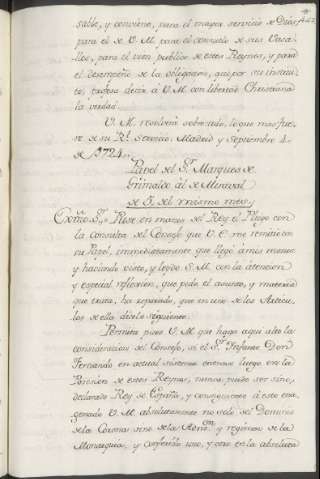 sable, y conviene, para el mayor servicio de Dios,
para el de V. M. para el consuelo de sus Vasa-
llos, para el vien publico de estos Reynos, y para
el desempeño de la obligacion, que por su institu-
to, tiene decir à V. M. con libertad Christiana
la verdad.
V. M. resolverà sobre todo, lo que mas fue-
re de su Rl. Servicio. Madrid y Septiembre 4.
de 1724.
Papel del Sr. Marques de
Grimaldo àl de Miraval
de 5. del vnismo mes,
Exmo. Sr. Puse en manos del Rey el Pliego con
la Consulta del Consejo que V. E. me remitiò con
su Papel, immediatamente que llegò à mis manos
y haviendo visto, y leydo S. M. con la atencion
y especial reflexion, que pide el asunto, y materia
que trata, ha reparado, que en uno de los Articu-
los de ella dice lo siguiente.
Permita pues V. M. que haga aqui alto la
consideracion del Consejo, si el Sr. Infante Don
Fernando en actual sucession entrase luego en la
Posesion de estos Reynos, nunca puede ser sino,
declarado Rey de España, y consiguiente à esto exo-
nerado V. M. absolutamente no solo del Dominio
de la Corona sino de la Admon. y regimen de la
Monarquia, y confesando uno, y otro en la absoluta